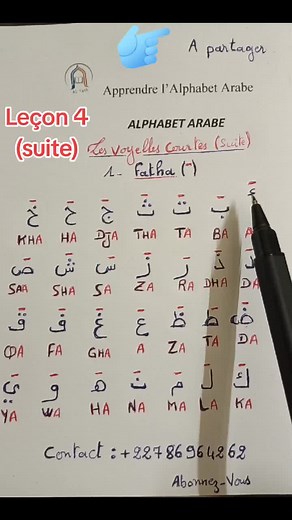 A partager
Apprendre l'Alphabet Arabe
Leçon 4
(suite)
ALPHABET ARABE
Les voyelles courtes (Suite)
1- Fatha (َ)
خَ حَ جَ ثَ تَ بَ ءَ
KHA HA DJA THA TA BA A
صَ شَ سَ زَ رَ ذَ دَ
SAA SHA SA ZA RA DHA DA
قَ فَ غَ عَ ظَ طَ ضَ
QA FA GHA A ZA TA DA
يَ وَ هَ نَ مَ لَ كَ
YA WA HA NA MA LA KA
Contact : +22786964262
Abonnez-Vous